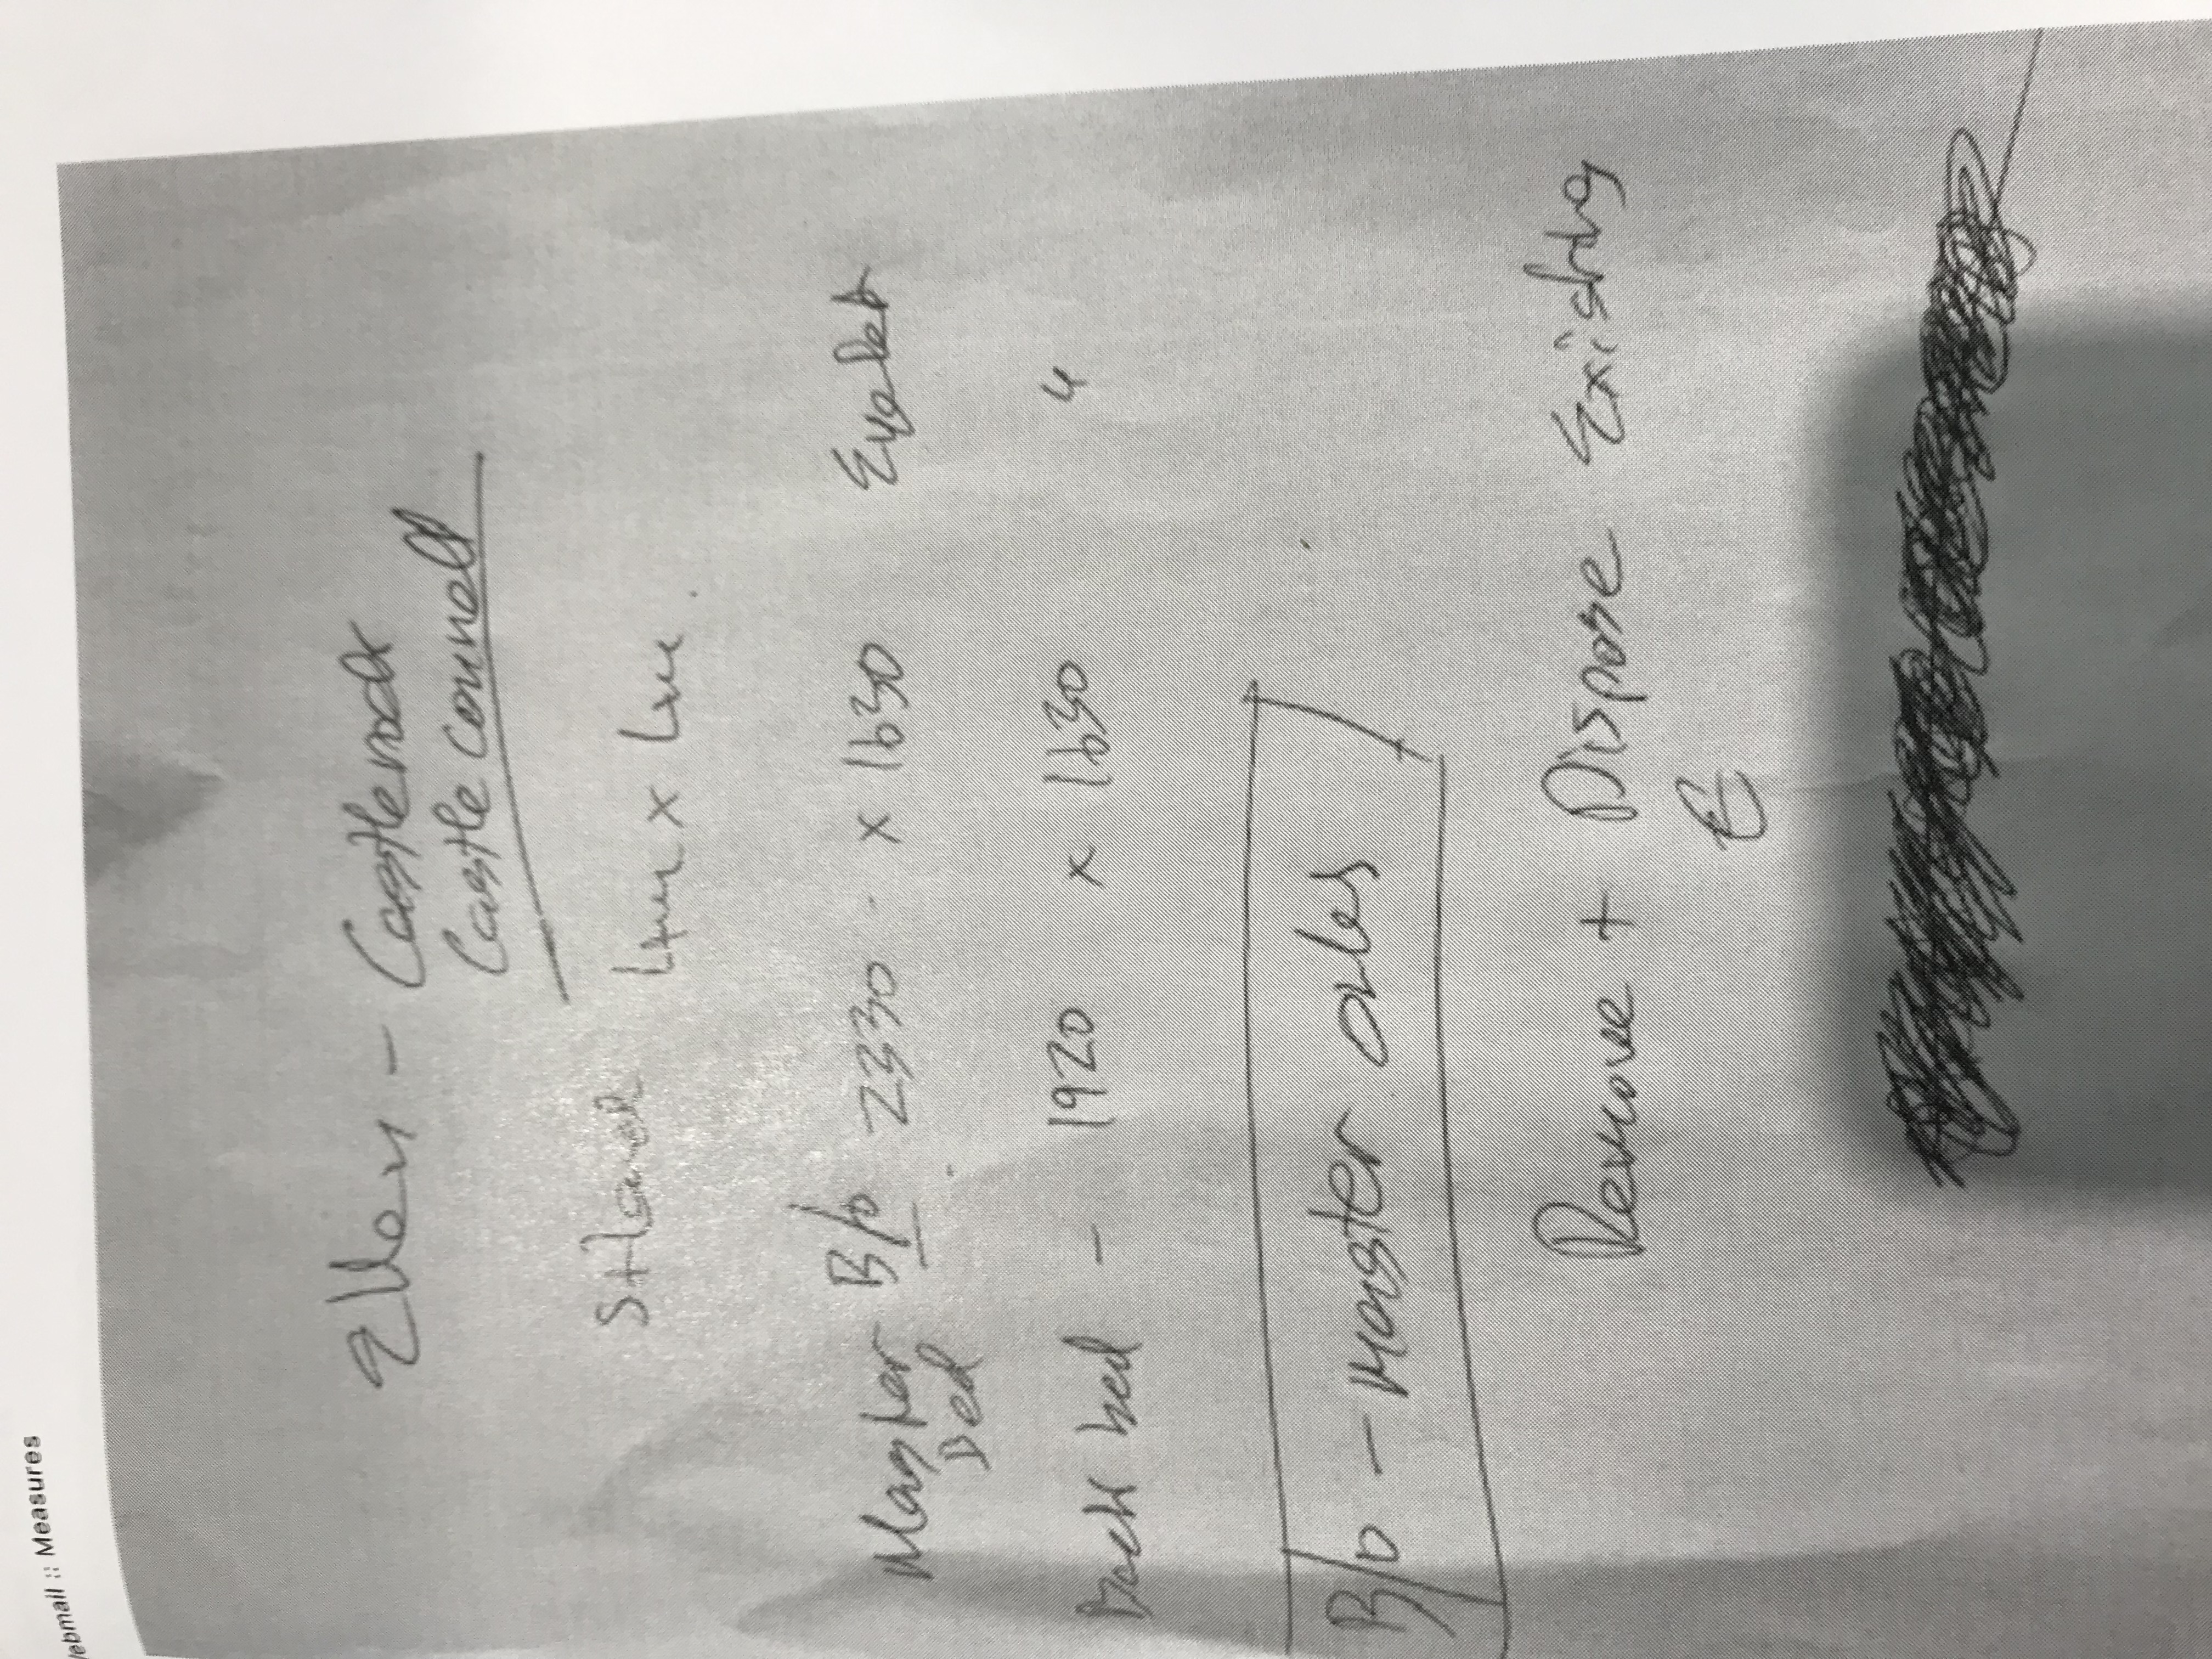 Webmail :: Measures
Ellen - Castlerock
Castleconnell
Master B/o 2330 x 1630 Eyelet
Bed
Back bed - 1920 x 1630 "
B/o - Master only
Remove + Dispose Existing